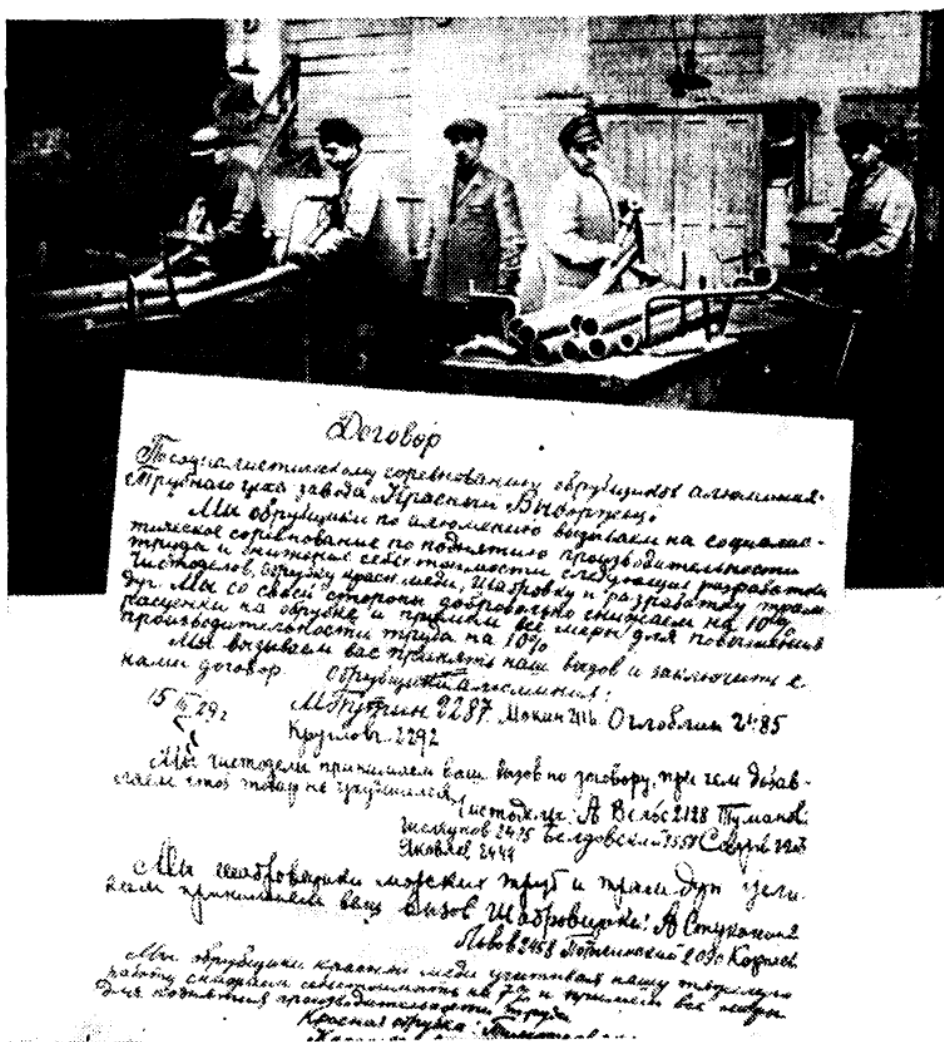 Договор
По социалистическому соревнованию обрубщиков алюминия
Трубного цеха завода „Красный Выборжец".
Мы обрубщики по алюмению вызываем на социалис-
тическое соревнование по поднятию производительности
труда и снижения себестоимости следующие разработки
Чистоделов, обрубку красн. меди, шабровку и разработку трам.
дуг. Мы со своей стороны добровольно снижаем на 10%
расценки на обрубке и примем все меры для повышения
производительности труда на 10%
Мы вызываем вас принять наш вызов и заключить с
нами договор. Обрубщики алюминия:
15 III 29 г
Путин 2287. Мокин Оглоблин 2485
Круглов 2292
Мы чистоделы принимаем ваш вызов по договору, при чем добав-
ляем чтоб товар не ухудшился
Чистоделы: А Вельс 2128 Туманов
2475 Белдовский
Яковлев 2444
Мы шабровщики морских труб и трам-дуг цели-
ком принимаем ваш вызов Шабровщики: А
Львов 2458 2090
Мы обрубщики красной меди учитывая нашу тяжелую
работу снижаем себестоимость на 7% и примем все меры
для поднятия производительности труда
Красная обрубка: